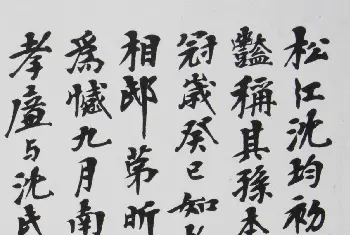 松江沈均初
豔稱其孫本
冠歲癸巳如
相郎第昕
爲憾九月南
孝廬与沈民